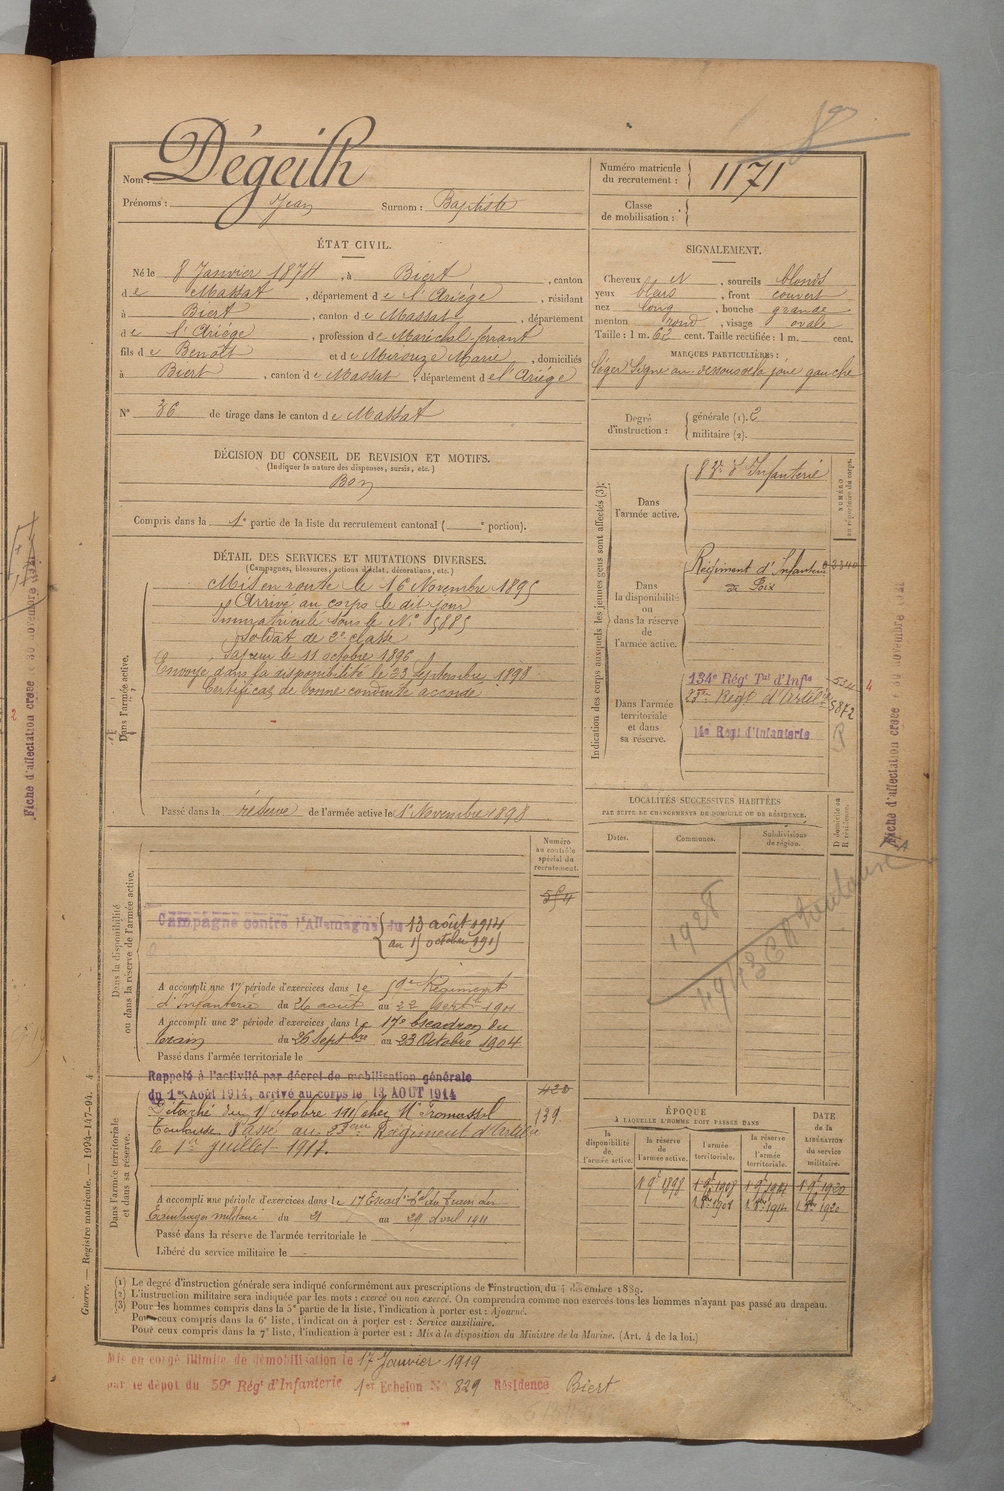 Nom : Dégeilh
Prénoms : Jean Surnom : Baptiste
Numéro matricule du recrutement : 1171
Classe de mobilisation :
ÉTAT CIVIL.
Né le 8 Janvier 1874, à Biert, canton
de Massat, département de l'Ariége, résidant
à Biert, canton de Massat, département
de l'Ariége, profession de Maréchal-ferrant
fils de Benoît et de Mirouze Marie, domiciliés
à Biert, canton de Massat, département de l'Ariége
N° 36 de tirage dans le canton de Massat
SIGNALEMENT.
Cheveux bl N, sourcils blonds
yeux bleus, front couvert
nez long, bouche grande
menton rond, visage ovale
Taille : 1 m. 62 cent. Taille rectifiée : 1 m. cent.
MARQUES PARTICULIÈRES :
Léger Signe au dessous de la joue gauche
Degré d'instruction : générale (1). 2
militaire (2).
DÉCISION DU CONSEIL DE REVISION ET MOTIFS.
(Indiquer la nature des dispenses, sursis, etc.)
Bon
Compris dans la 1e partie de la liste du recrutement cantonal ( e portion).
DÉTAIL DES SERVICES ET MUTATIONS DIVERSES.
(Campagnes, blessures, actions d'éclat, décorations, etc.)
Dans l'armée active.
Mis en route le 16 Novembre 1895
Arrivé au corps le dit jour
Immatriculé sous le N° 5885
Soldat de 2e classe
le 11 octobre 1896
Envoyé dans la disponibilité le 23 Septembre 1898
Certificat de bonne conduite accordé
Passé dans la réserve de l'armée active le 1 Novembre 1898
Indication des corps auxquels les jeunes gens sont affectés (3).
NUMÉRO au répertoire du corps.
Dans l'armée active.
d'Infanterie
Dans la disponibilité ou dans la réserve de l'armée active.
Régiment d'Infanterie
de Foix
Dans l'armée territoriale et dans sa réserve.
134e Régt Tal d'Infie
23me Régt d'Artilie 5872
14e Regt d'Infanterie
LOCALITÉS SUCCESSIVES HABITÉES
PAR SUITE DE CHANGEMENTS DE DOMICILE OU DE RÉSIDENCE.
Dates. Communes. Subdivisions de région. D domicile ou R résidence.
1928
Toulouse
Dans la disponibilité ou dans la réserve de l'armée active.
Numéro au contrôle spécial du recrutement.
Campagne contre l'Allemagne du 13 août 1914
au 15 octobre 1915
A accompli une 1re période d'exercices dans le 59e Régiment
d'infanterie du 26 août au 22 Septbre 1901
A accompli une 2e période d'exercices dans le 17e Escadron du
Train du 26 Septbre au 23 Octobre 1904
Passé dans l'armée territoriale le
Dans l'armée territoriale et dans sa réserve.
Rappelé à l'activité par décret de mobilisation générale
du 1er Août 1914, arrivé au corps le 13 AOUT 1914
Détaché du 15 octobre 1915 chez Mr
Toulouse Passé au 23eme Régiment d'Artilie
le 1er Juillet 1917.
139
A accompli une période d'exercices dans le 17 Escadron du Train des
Equipages militaire du 21 au 29 Avril 1911
Passé dans la réserve de l'armée territoriale le
Libéré du service militaire le
ÉPOQUE
À LAQUELLE L'HOMME DOIT PASSER DANS
la disponibilité de l'armée active. la réserve de l'armée active. l'armée territoriale. la réserve de l'armée territoriale.
DATE de la LIBÉRATION du service militaire.
1 9bre 1898 1 9bre 1908 1 9bre 1914 1 9bre 1920
1. 8bre 1908 1. 8bre 1914 1. 8bre 1920
(1) Le degré d'instruction générale sera indiqué conformément aux prescriptions de l'instruction, du 4 décembre 1889.
(2) L'instruction militaire sera indiquée par les mots : exercé ou non exercé. On comprendra comme non exercés tous les hommes n'ayant pas passé au drapeau.
(3) Pour les hommes compris dans la 5e partie de la liste, l'indication à porter est : Ajourné.
Pour ceux compris dans la 6e liste, l'indication à porter est : Service auxiliaire.
Pour ceux compris dans la 7e liste, l'indication à porter est : Mis à la disposition du Ministre de la Marine. (Art. 4 de la loi.)
Guerre. — Registre matricule. — 1994-147-94. 4
Mis en congé illimité de démobilisation le 17 Janvier 1919
par le dépôt du 59e Régt d'Infanterie 1er Echelon N° 829 Résidence Biert
Fiche d'affectation créée
Fiche d'affectation créée